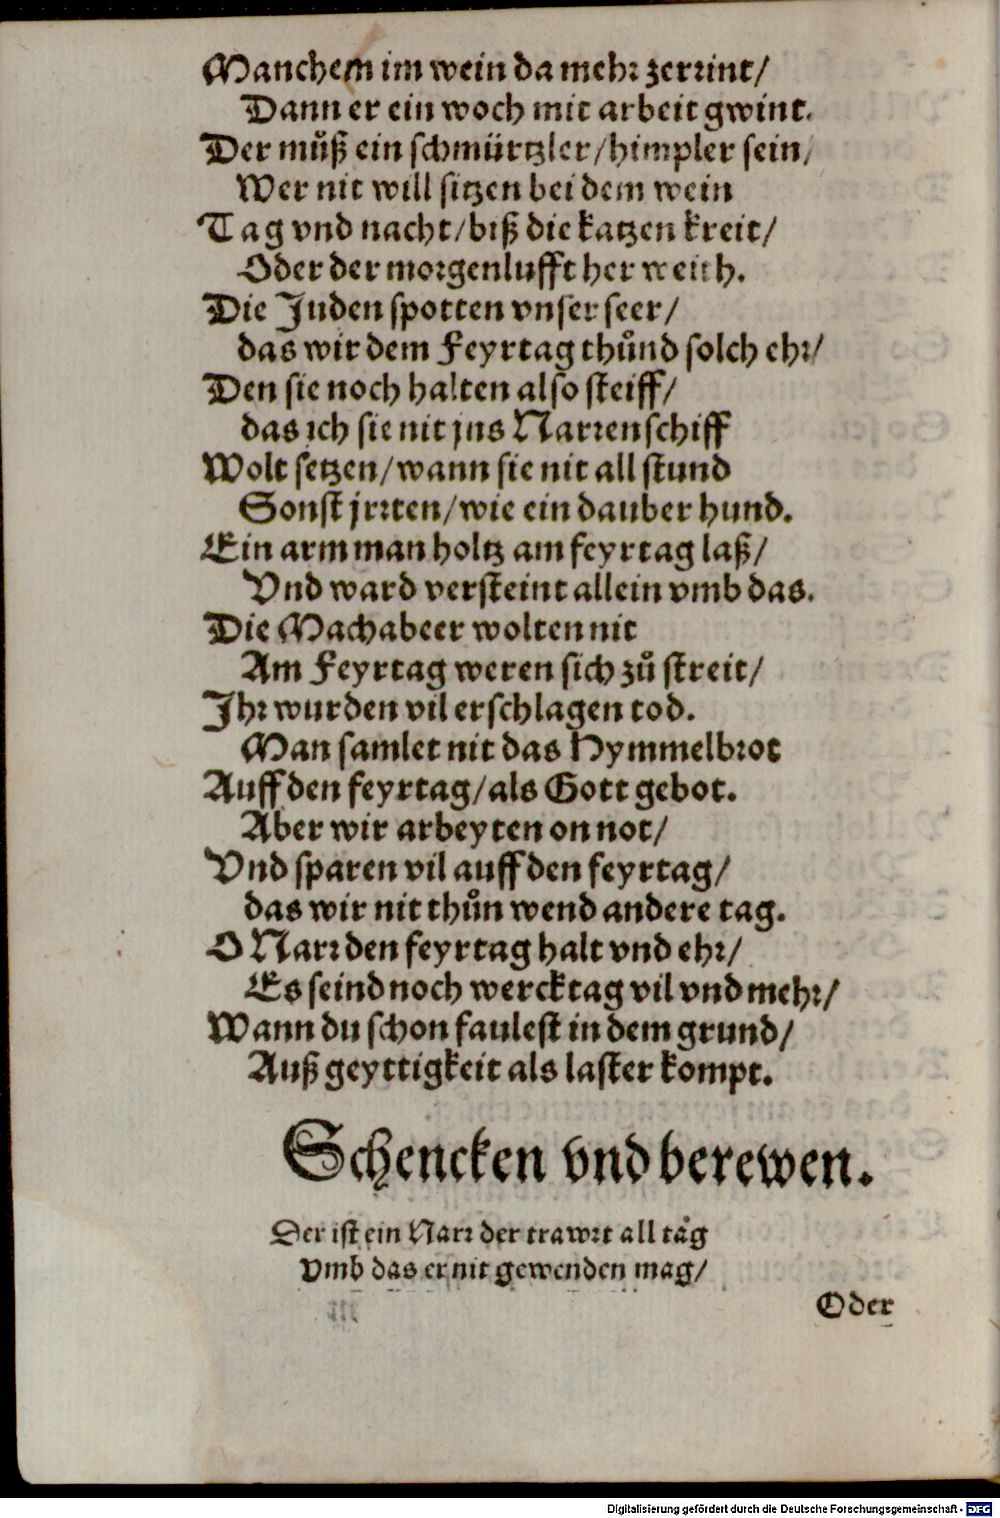 Manchem im wein da mehr zerrint/
Dann er ein woch mit arbeit gwint.
Der můß ein schmürtzler/himpler sein/
Wer nit will sitzen bei dem wein
Tag vnd nacht/biß die katzen kreit/
Oder der morgenlufft her weith.
Die Juden spotten vnser seer/
das wir dem Feyrtag thůnd solch ehr/
Den sie noch halten also steiff/
das ich sie nit jns Narrenschiff
Wolt setzen/wann sie nit all stund
Sonst jrrten/wie ein dauber hund.
Ein arm man holtz am feyrtag laß/
Vnd ward versteint allein vmb das.
Die Machabeer wolten nit
Am Feyrtag weren sich zů streit/
Jhr wurden vil erschlagen tod.
Man samlet nit das Hymmelbrot
Auff den feyrtag/als Gott gebot.
Aber wir arbeyten on not/
Vnd sparen vil auff den feyrtag/
das wir nit thůn wend andere tag.
O Narr den feyrtag halt vnd ehr/
Es seind noch wercktag vil vnd mehr/
Wann du schon faulest in dem grund/
Auß geyttigkeit als laster kompt.
Schencken vnd berewen.
Der ist ein Narr der trawrt all täg
Vmb das er nit gewenden mag/
Oder
Digitalisierung gefördert durch die Deutsche Forschungsgemeinschaft - DFG